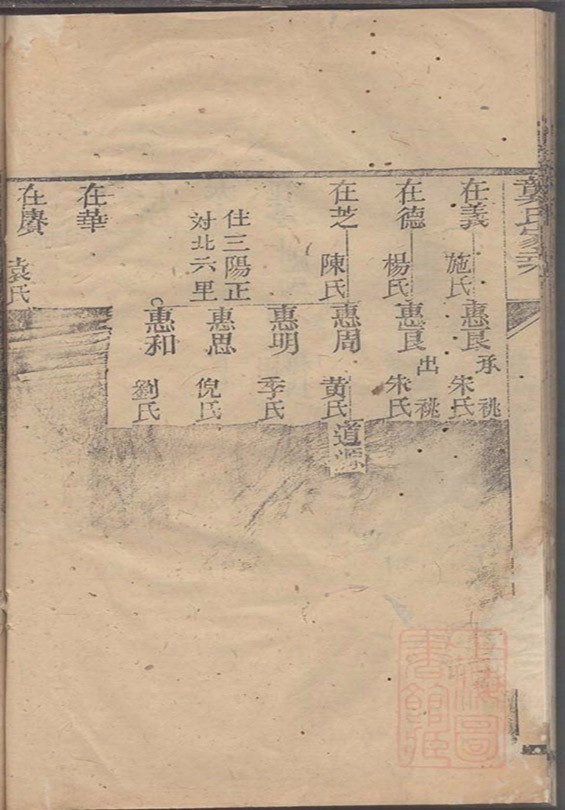 龔氏家
在義 施氏
惠良 承祧 朱氏
在德 楊氏
惠良 出祧 朱氏
在芝 陳氏
惠周 黄氏
道源
惠明 季氏
住三陽正
対北六里
惠思 倪氏
惠和 劉氏
在華
在賡 袁氏
圖
書館